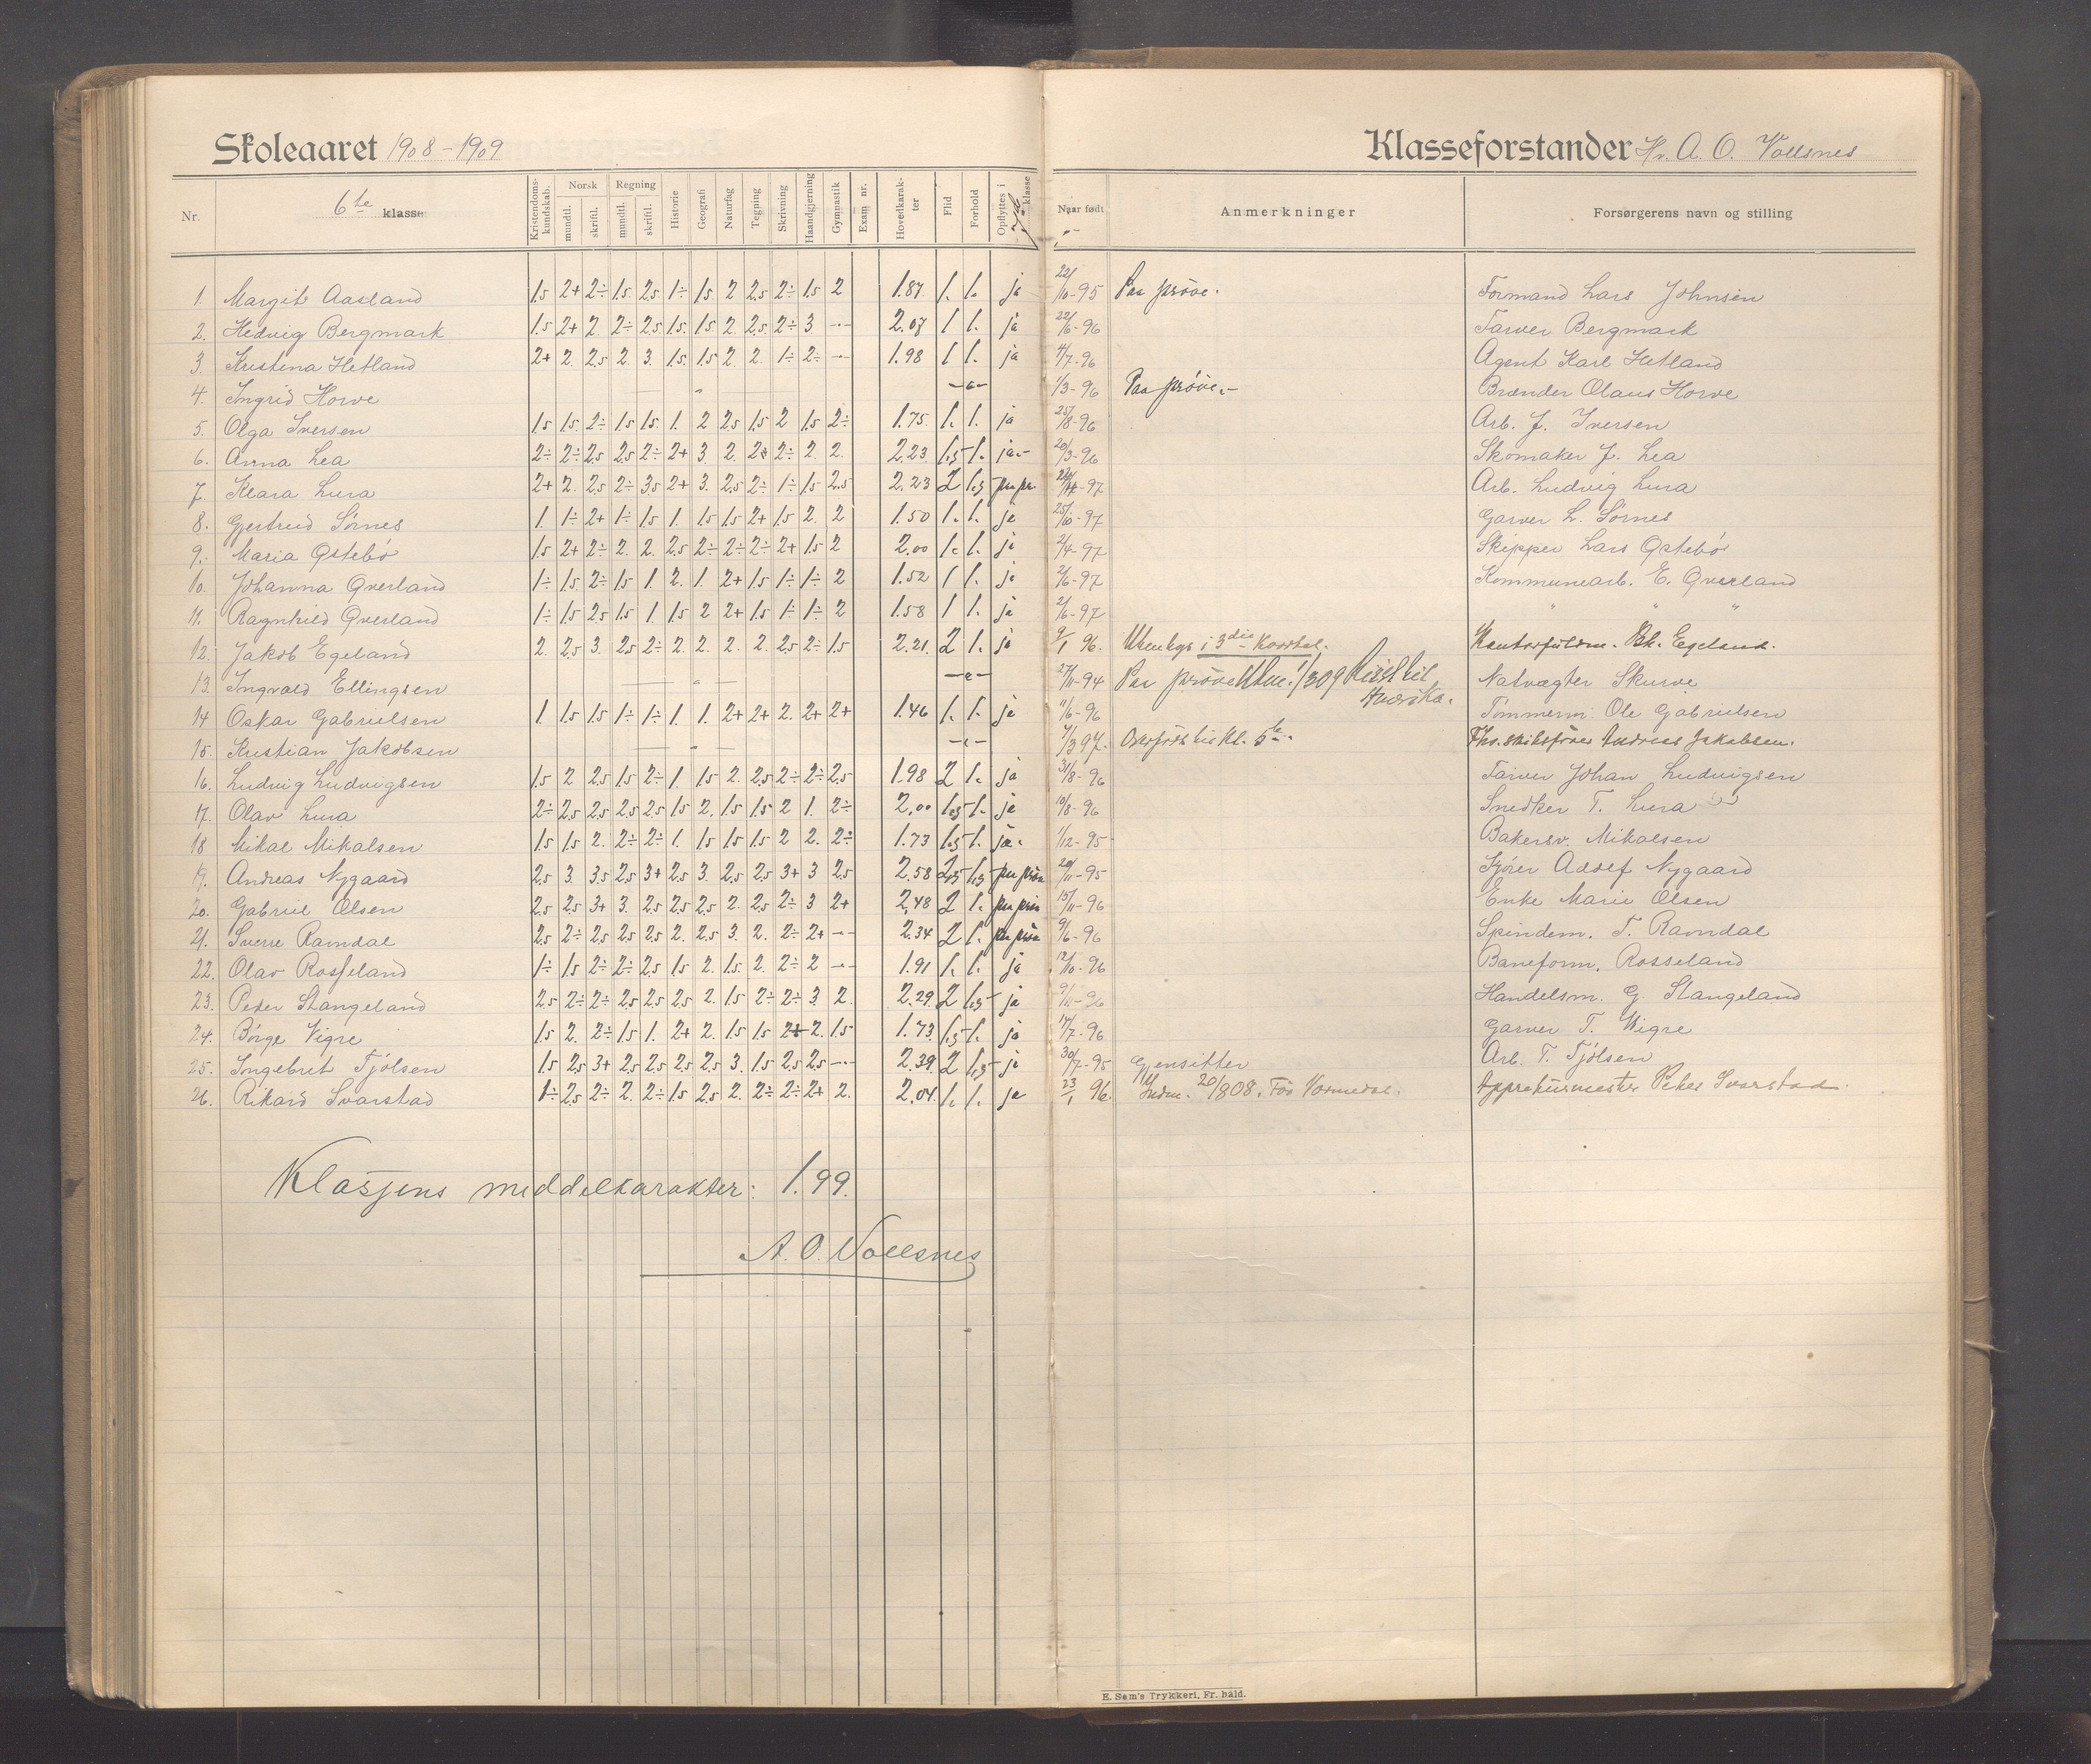 Skoleaaret 1908-1909 Klasseforstander Hr. A. O. Vollsnes
Nr. 6te klasse Kristendomskundskab. Norsk mundtl. skriftl. Regning mundtl. skriftl. Historie Geografi Naturfag Tegning Skrivning Haandgjerning Gymnastik Exam nr. Hovedkarakter Flid Forhold Opflyttes i klasse Naar født Anmerkninger Forsørgerens navn og stilling
1. Margit Aasland 1.5 2+ 2÷ 1.5 2.5 1÷ 1.5 2 2.5 2÷ 1.5 2 1.87 1. 1. ja 22/10-95 Paa prøve. Formand Lars Johnsen
2. Hedvig Bergmark 1.5 2+ 2 2÷ 2.5 1.5 1.5 2 2.5 2÷ 3 -- 2.07 1 1. ja 22/6-96 Farver Bergmark
3. Kristena Hetland 2+ 2 2.5 2 3. 1.5 1.5 2 2 1÷ 2÷ -- 1.98 1 1. ja 4/7-96 Agent Karl Hetland
4. Ingrid Horve 1/3-96 Paa prøve.- Brænder Olaus Horve
5. Olga Iversen 1.5 1.5 2÷ 1.5 1.5 1. 2 2.5 1.5 2 1.5 2÷ 1.75 1. 1. ja 25/8-96 Arb. J. Iversen
6. Anna Lea 2÷ 2÷ 2.5 2.5 2÷ 2+ 3. 2. 2+ 2÷ 2. 2. 2.23 1.5 1. ja.- 20/3-96 Skomaker J. Lea
7. Klara Lura 2+ 2. 2.5 2÷ 3.5 2+ 3. 2.5 2÷ 1÷ 1.5 2.5 2.23 2 1.5 paa pr -97 Arb. Ludvig Lura
8. Gjertrud Sørnes 1. 1÷ 2+ 1÷ 1.5 1. 1.5 1.5 2+ 1.5 2. 2 1.50 1. 1. ja 25/10-97 Garver L. Sørnes
9. Maria Østebø 1.5 2+ 2÷ 2. 2. 2.5 2÷ 2÷ 2÷ 2+ 1.5 2 2.00 1. 1. ja 2/4-97 Skipper Lars Østebø
10. Johanna Qverland 1÷ 1.5 2÷ 1.5 1. 2. 1. 2+ 1.5 1÷ 1÷ 2 1.52 1 1. ja 2/6-97 Kommunearb. E. Qverland
11. Ragnhild Qverland 1÷ 1.5 2.5 1.5 1. 1.5 2 2+ 1.5 1÷ 1÷ 2 1.58 1 1. ja 2/6-97 " " "
12. Jakob Egeland 2. 2.5 3. 2.5 2÷ 2. 2. 2. 2. 2.5 2÷ 1.5 2.21. 2 1. ja 9/1 96. Utenbys i 3die kvartal. Kontorfuldm. Egeland.
13. Ingvald Ellingsen 27/11-94 Paa prøve Utm. 1/309 Reist til Amerika. Natvægter Skurve
14 Oskar Gabrielsen 1. 1.5 1.5 1÷ 1÷ 1. 1. 2+ 2+ 2. 2+ 2+ 1.46 1. 1. ja 11/6-96 Tømmerm. Ole Gabrielsen
15. Kristian Jakobsen 7/3 97. Overført til Kl. 5te. Fhv. skibsfører Andreas Jakobsen.
16. Ludvig Ludvigsen 1.5 2 2.5 1.5 2÷ 1. 1.5 2. 2.5 2÷ 2÷ 2.5 1.98 2 1. ja 31/8-96 Farver Johan Ludvigsen
17. Olav Lura 2÷ 2.5 2.5 2.5 2.5 1.5 2. 1.5 1.5 2 1. 2÷ 2.00 1.5 1. ja 10/8-96 Snedker T. Lura
18 Mikal Mikalsen 1.5 1.5 2. 2÷ 2÷ 1. 1.5 1.5 1.5 2 2. 2÷ 1.73 1.5 1. ja. 1/12-95 Bakersv. Mikalsen
19. Andreas Nygaard 2.5 3. 3.5 2.5 3+ 2.5 3. 2.5 2.5 3+ 3 2.5 2.58 2.5 1.5 paa prøve 20/11-95 Kjører Adolf Nygaard
20. Gabriel Olsen 2.5 2.5 3+ 3. 2.5 2.5 2.5 2. 2.5 2÷ 3 2+ 2.48 2 1. paa prøve 15/11-96 Enke Marie Olsen
21. Sverre Ravndal 2.5 2÷ 2.5 2.5 2.5 2. 2.5 3. 2. 2÷ 2+ -- 2.34 2 1. paa prøve 9/6-96 Spindem. T. Ravndal
22. Olav Rosseland 1÷ 1.5 2÷ 2÷ 2.5 1.5 2. 1.5 2. 2÷ 2 -- 1.91 1. 1. ja 12/10-96 Baneform. Rosseland
23. Peder Stangeland 2.5 2÷ 2÷ 2.5 2.5 2.5 2. 1.5 2÷ 2÷ 3. 2. 2.29 2 1.5 ja 9/11-96 Handelsm. G. Stangeland
24. Børge Vigre 1.5 2. 2÷ 1.5 1. 2+ 2. 1.5 1.5 2+ 2. 1.5 1.73 1.5 1. ja 14/7-96 Garver T. Vigre
25. Ingebret Tjølsen 1.5 2.5 3+ 2.5 2.5 2.5 2.5 3. 1.5 2.5 2.5 -- 2.39 2 1.5 ja 30/7-95 Gjensitter Arb. T. Tjølsen
26. Rikard Svarstad 1÷ 2.5 2÷ 2. 2÷ 1.5 2.5 2. 2÷ 2÷ 2+ 2. 2.04. 1. 1. ja 23/1 96. Indm. 20/808. Appreturmester Peder Svarstad.
Klassens middelkarakter: 1.99.
A. O. Vollsnes
E. Sem's Trykkeri, Fr. hald.